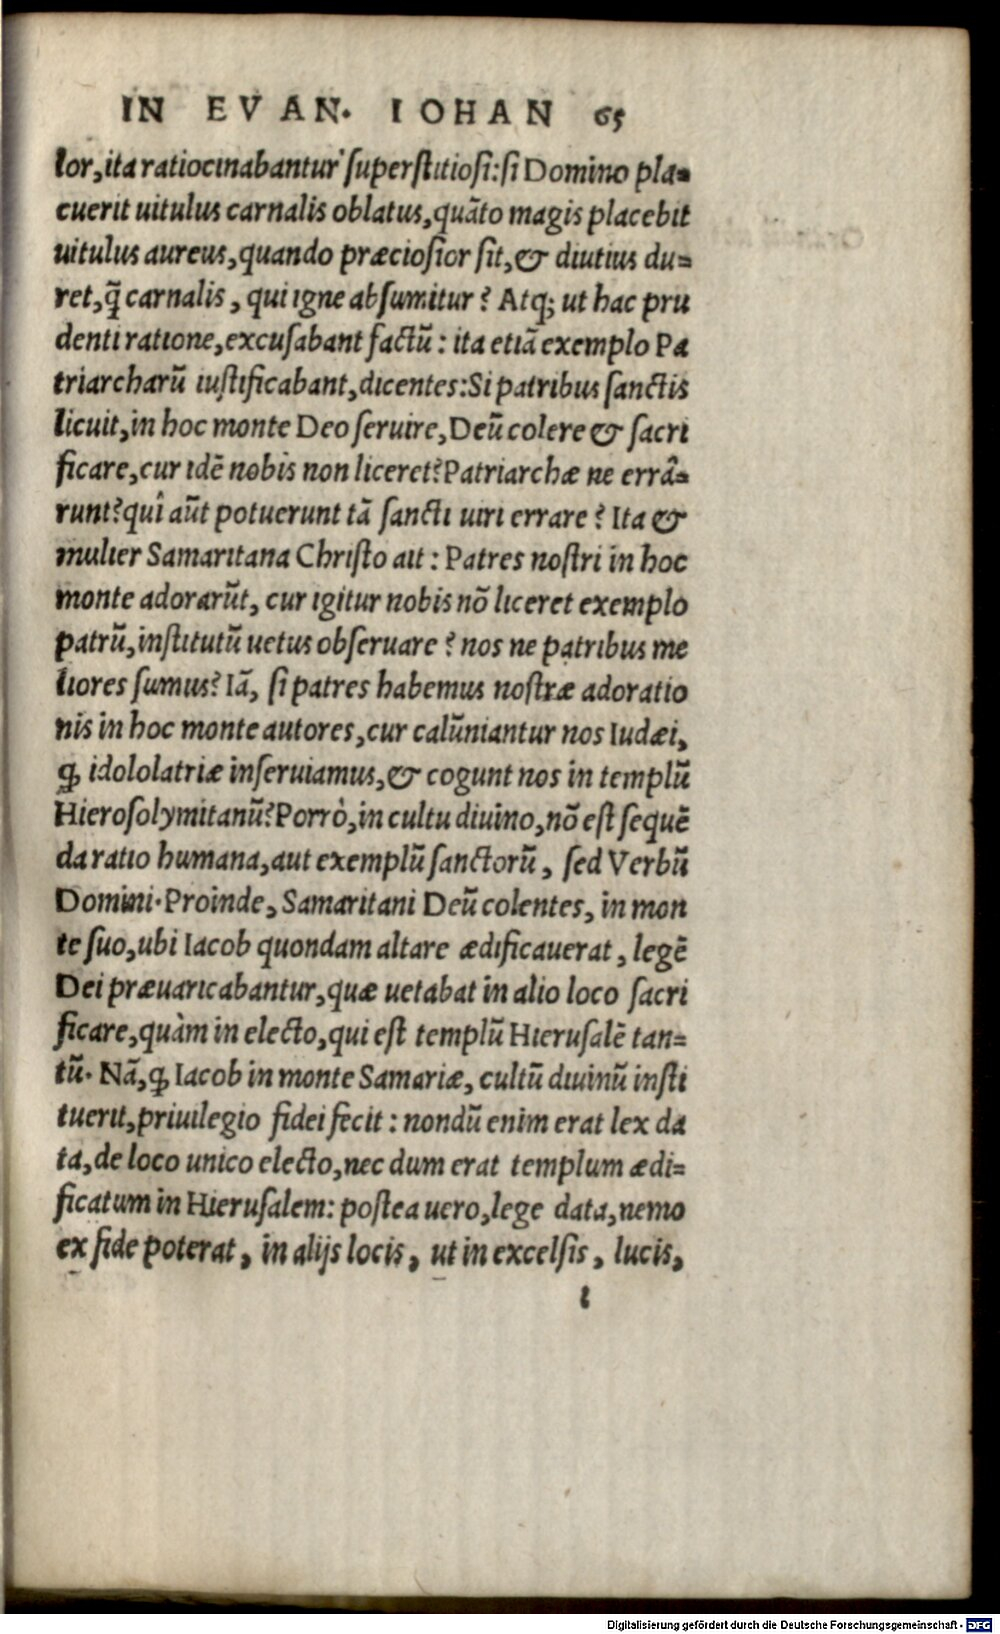 IN EVAN. IOHAN 65
lor, ita ratiocinabantur superstitiosi: si Domino pla-
cuerit uitulus carnalis oblatus, quãto magis placebit
uitulus aureus, quando præciosior sit, & diutius du-
ret, q̃ carnalis, qui igne absumitur? Atq; ut hac pru
denti ratione, excusabant factũ: ita etiã exemplo Pa
triarcharũ iustificabant, dicentes: Si patribus sanctis
licuit, in hoc monte Deo seruire, Deũ colere & sacri
ficare, cur idẽ nobis non liceret? Patriarchæ ne errâ-
runt? quî aũt potuerunt tã sancti uiri errare? Ita &
mulier Samaritana Christo ait: Patres nostri in hoc
monte adorarũt, cur igitur nobis nõ liceret exemplo
patrũ, institutũ uetus obseruare? nos ne patribus me
liores sumus? Iã, si patres habemus nostræ adoratio
nis in hoc monte autores, cur calũniantur nos Iudæi,
ꝙ idololatriæ inseruiamus, & cogunt nos in templũ
Hierosolymitanũ? Porrò, in cultu diuino, nõ est sequẽ
da ratio humana, aut exemplũ sanctorũ, sed Verbũ
Domini. Proinde, Samaritani Deũ colentes, in mon
te suo, ubi Iacob quondam altare ædificauerat, legẽ
Dei præuaricabantur, quæ uetabat in alio loco sacri
ficare, quàm in electo, qui est templũ Hierusalẽ tan-
tũ. Nã, ꝙ Iacob in monte Samariæ, cultũ diuinũ insti
tuerit, priuilegio fidei fecit: nondũ enim erat lex da
ta, de loco unico electo, nec dum erat templum ædi-
ficatum in Hierusalem: postea uero, lege data, nemo
ex fide poterat, in alijs locis, ut in excelsis, lucis,
l
Digitalisierung gefördert durch die Deutsche Forschungsgemeinschaft - DFG